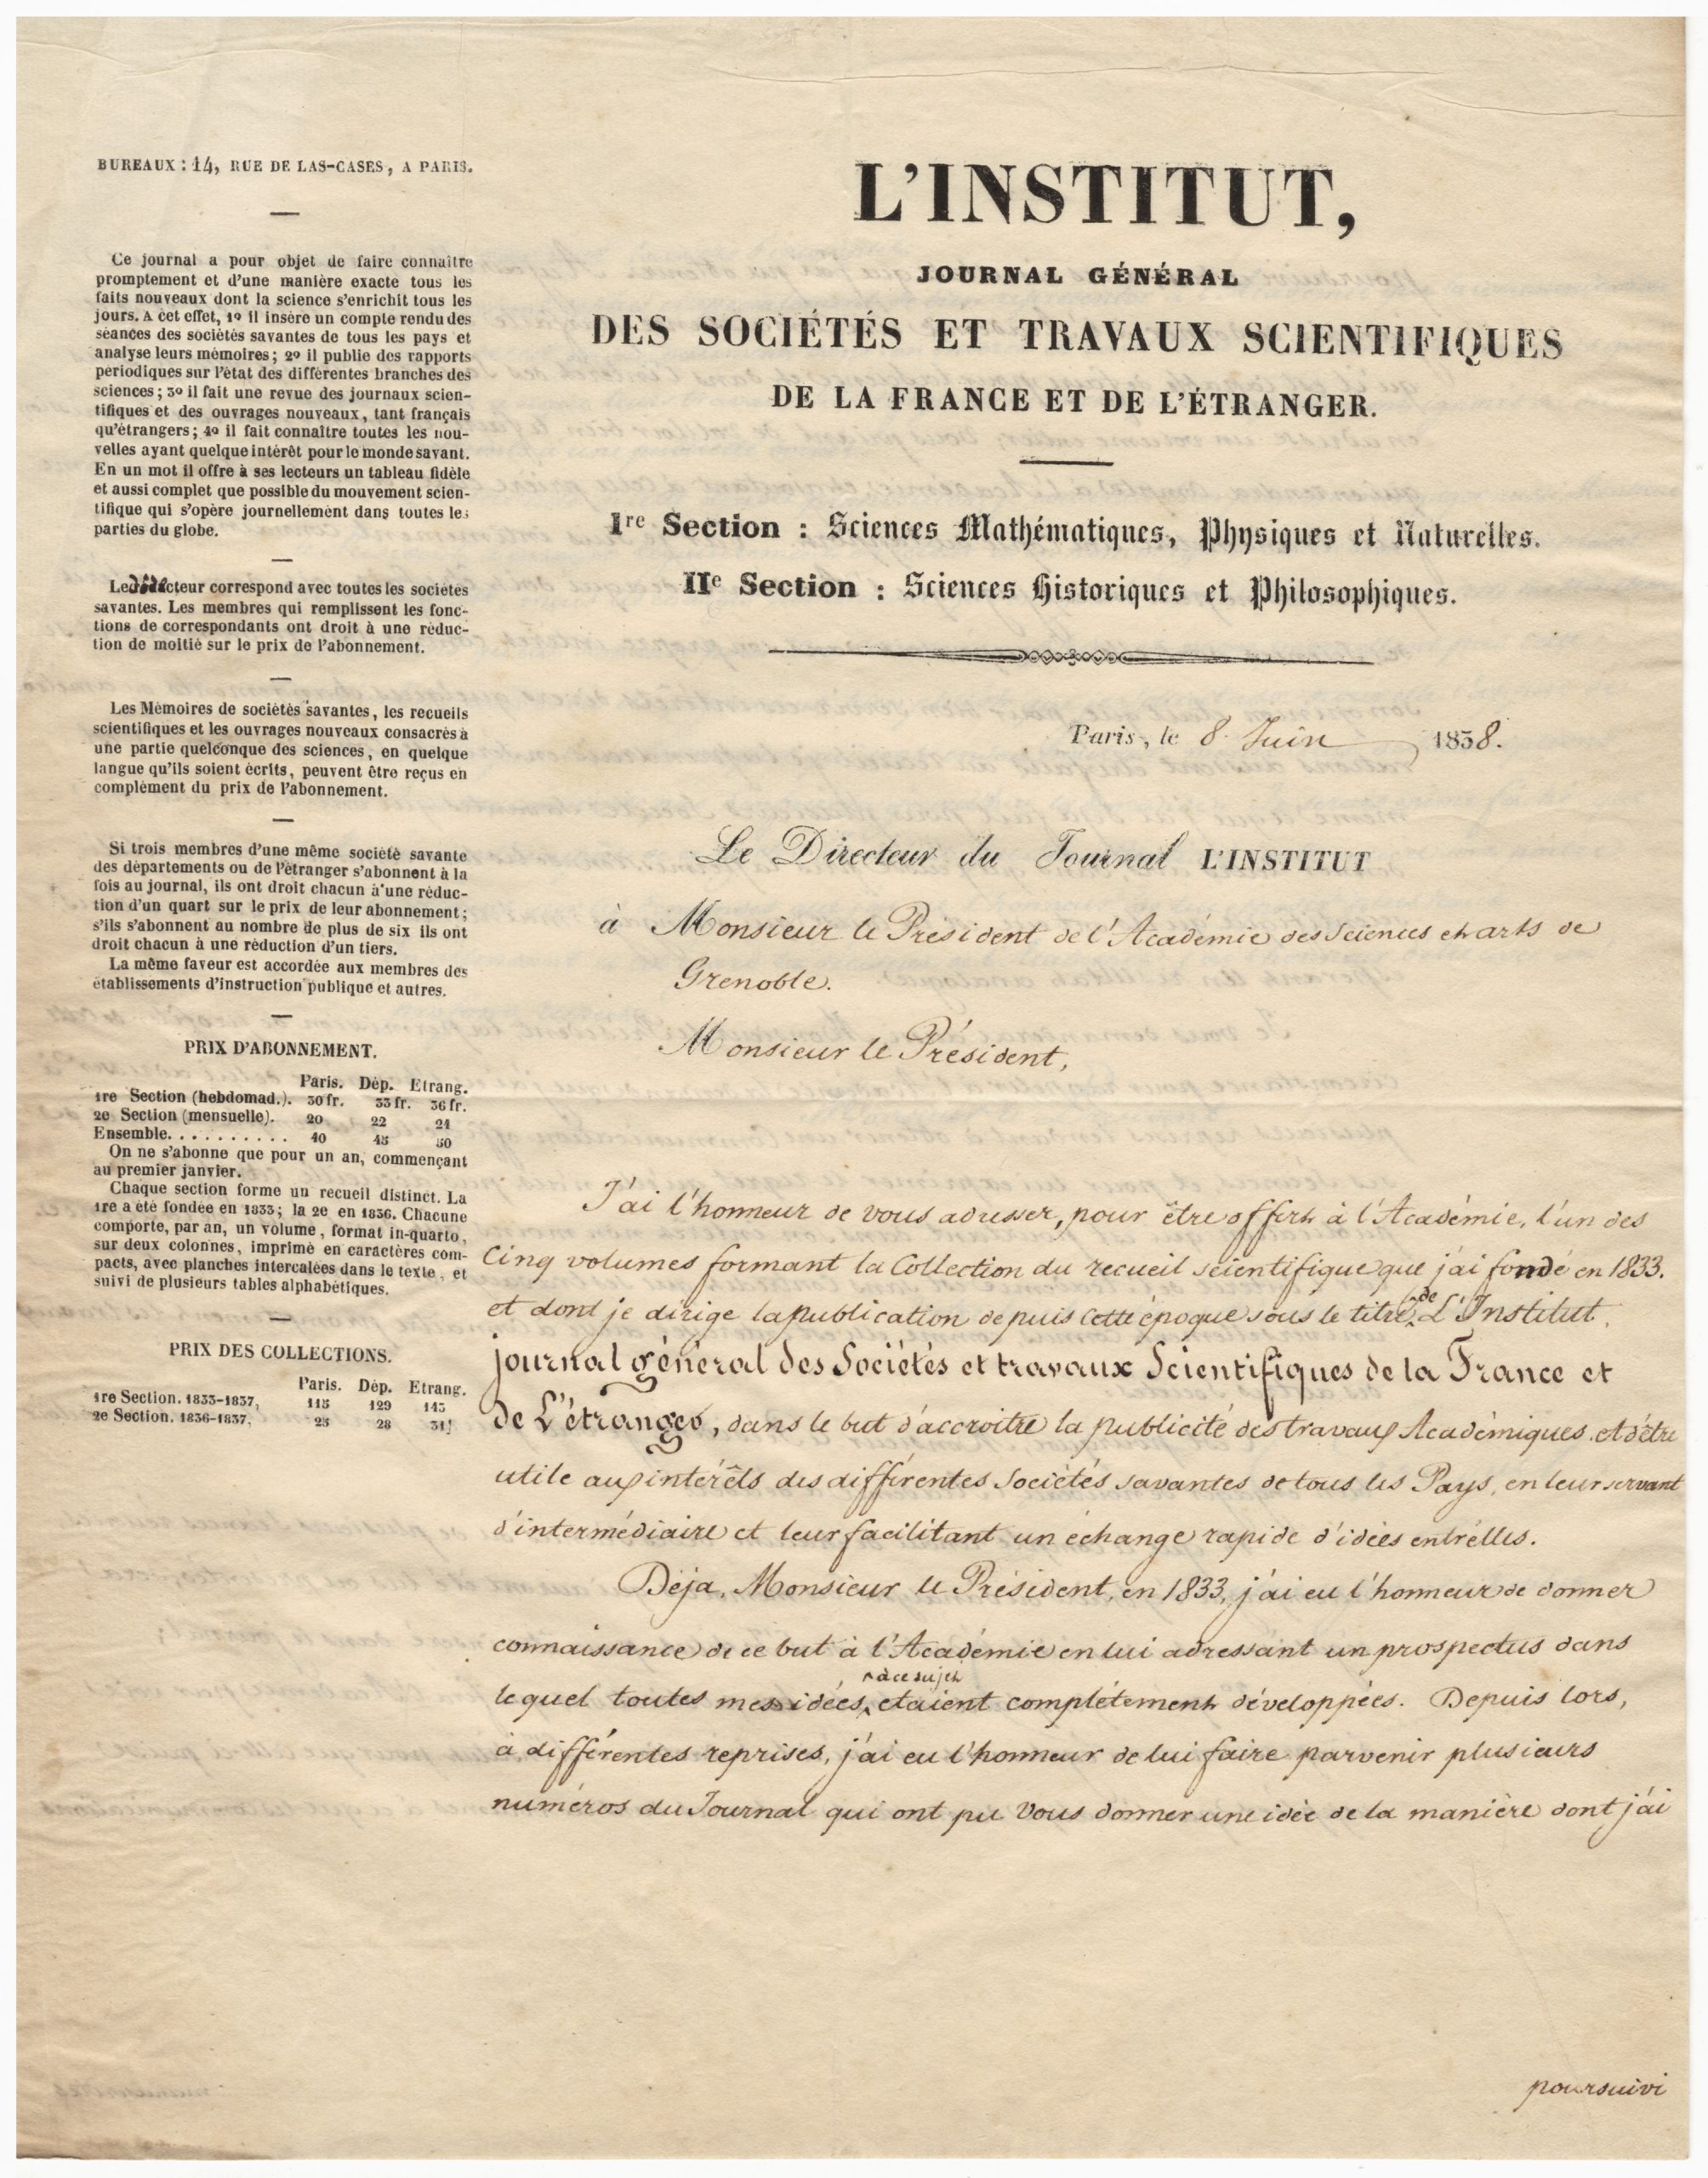 BUREAUX : 14, RUE DE LAS-CASES, A PARIS.
Ce journal a pour objet de faire connaître
promptement et d'une manière exacte tous les
faits nouveaux dont la science s'enrichit tous les
jours. A cet effet, 1º il insère un compte rendu des
séances des sociétés savantes de tous les pays et
analyse leurs mémoires; 2º il publie des rapports
périodiques sur l'état des différentes branches des
sciences; 3º il fait une revue des journaux scien-
tifiques et des ouvrages nouveaux, tant français
qu'étrangers; 4º il fait connaître toutes les nou-
velles ayant quelque intérêt pour le monde savant.
En un mot il offre à ses lecteurs un tableau fidèle
et aussi complet que possible du mouvement scien-
tifique qui s'opère journellement dans toutes les
parties du globe.
Le cteur correspond avec toutes les sociétés
savantes. Les membres qui remplissent les fonc-
tions de correspondants ont droit à une réduc-
tion de moitié sur le prix de l'abonnement.
Les Mémoires de sociétés savantes, les recueils
scientifiques et les ouvrages nouveaux consacrés à
une partie quelconque des sciences, en quelque
langue qu'ils soient écrits, peuvent être reçus en
complément du prix de l'abonnement.
Si trois membres d'une même société savante
des départements ou de l'étranger s'abonnent à la
fois au journal, ils ont droit chacun à une réduc-
tion d'un quart sur le prix de leur abonnement;
s'ils s'abonnent au nombre de plus de six ils ont
droit chacun à une réduction d'un tiers.
La même faveur est accordée aux membres des
établissements d'instruction publique et autres.
PRIX D'ABONNEMENT.
Paris. Dép. Etrang.
1re Section (hebdomad.). 30 fr. 33 fr. 36 fr.
2e Section (mensuelle). 20 22 24
Ensemble. . . . . . . . . . 40 45 50
On ne s'abonne que pour un an, commençant
au premier janvier.
Chaque section forme un recueil distinct. La
1re a été fondée en 1833; la 2e en 1836. Chacune
comporte, par an, un volume, format in-quarto,
sur deux colonnes, imprimé en caractères com-
pacts, avec planches intercalées dans le texte, et
suivi de plusieurs tables alphabétiques.
PRIX DES COLLECTIONS.
Paris. Dép. Etrang.
1re Section. 1833-1837, 115 129 143
2e Section. 1836-1837, 25 28 31
L'INSTITUT,
JOURNAL GÉNÉRAL
DES SOCIÉTÉS ET TRAVAUX SCIENTIFIQUES
DE LA FRANCE ET DE L'ÉTRANGER.
Ire Section : Sciences Mathématiques, Physiques et Naturelles.
IIe Section : Sciences Historiques et Philosophiques.
Paris, le 8 Juin 1838.
Le Directeur du Journal L'INSTITUT
à Monsieur le Président de l'Académie des Sciences et arts de
Grenoble.
Monsieur le Président,
J'ai l'honneur de vous adresser, pour être offert à l'Académie, l'un des
Cinq volumes formant la Collection du recueil scientifique que j'ai fondé en 1833.
et dont je dirige la publication depuis cette époque sous le titre de L'Institut,
journal général des Sociétés et travaux Scientifiques de la France et
de L'étranger, dans le but d'accroitre la publicité des travaux Académiques et d'être
utile aux intérêts des différentes Sociétés savantes de tous les Pays, en leur servant
d'intermédiaire et leur facilitant un échange rapide d'idées entr'elles.
Déja, Monsieur le Président, en 1833, j'ai eu l'honneur de donner
connaissance de ce but à l'Académie en lui adressant un prospectus dans
lequel toutes mes idées à ce sujet etaient complétement développées. Depuis lors,
à différentes reprises, j'ai eu l'honneur de lui faire parvenir plusieurs
numéros du Journal qui ont pu vous donner une idée de la manière dont j'ai
poursuivi